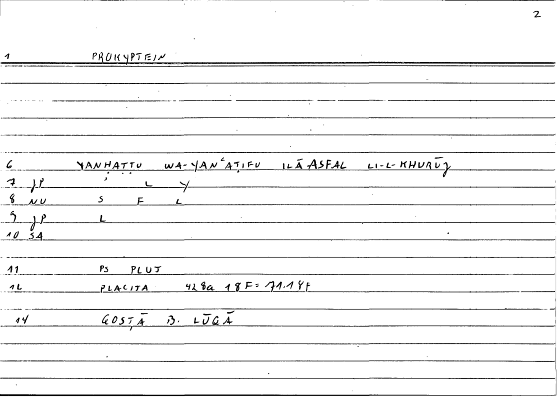 2
1 PROKYPTEIN
6 YANḤAṬṬU WA-YANʿAṬIFU ILĀ ASFAL LI-L-KHURŪǧ
7 JP ; L Y
8 NU S F L
9 JP L
10 SA
11 PS PLUT
12 PLACITA 428a 18F = 71.18f
14 QOSṬĀ B. LŪQĀ